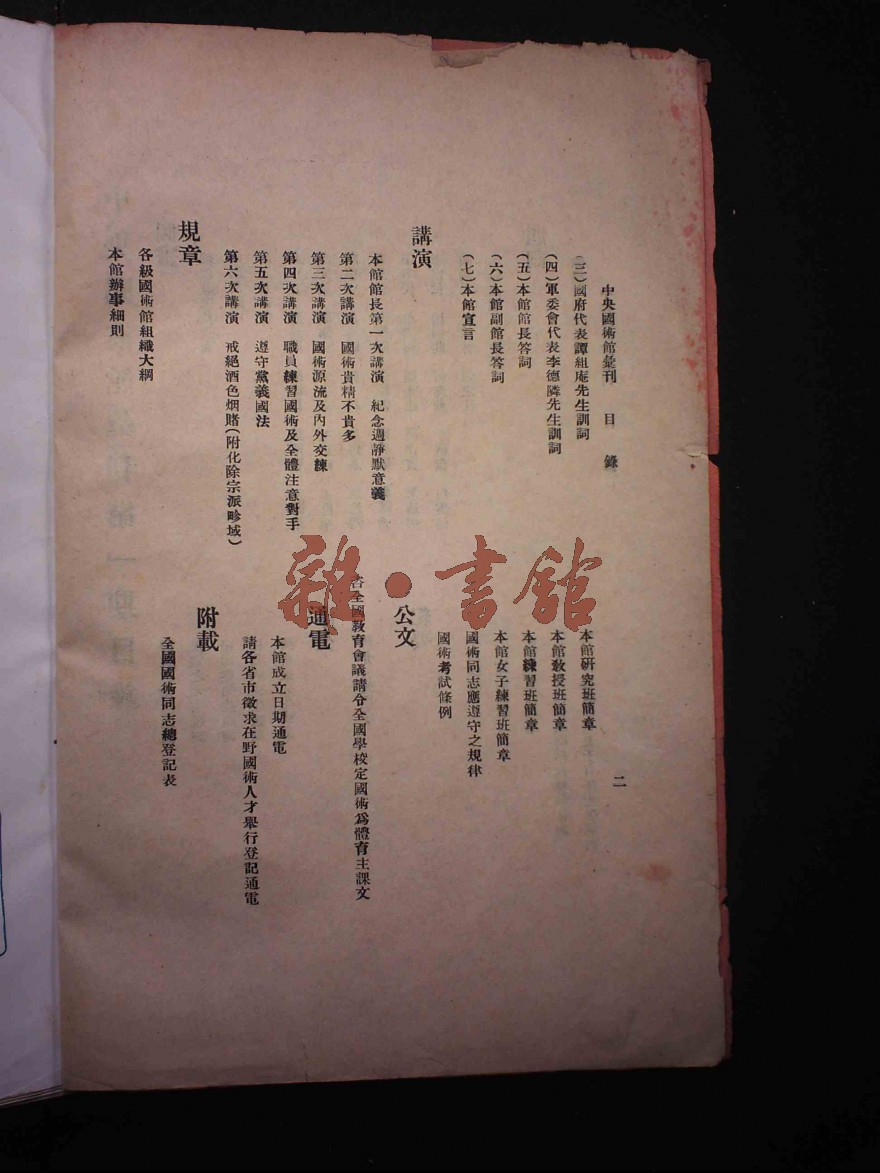 中央國術館彙刊　目　錄　二
(三)國府代表譚組庵先生訓詞
(四)軍委會代表李德隣先生訓詞
(五)本館館長答詞
(六)本館副館長答詞
(七)本館宣言
講演
本館館長第一次講演　紀念週靜默意義
第二次講演　國術貴精不貴多
第三次講演　國術源流及內外交練
第四次講演　職員練習國術及全體注意對手
第五次講演　遵守黨義國法
第六次講演　戒絕酒色烟賭(附化除宗派畛域)
規章
各級國術館組織大綱
本館辦事細則
本館研究班簡章
本館教授班簡章
本館練習班簡章
本館女子練習班簡章
國術同志應遵守之規律
國術考試條例
公文
咨全國教育會議請令全國學校定國術爲體育主課文
通電
本館成立日期通電
請各省市徵求在野國術人才舉行登記通電
附載
全國國術同志總登記表
雜·書館